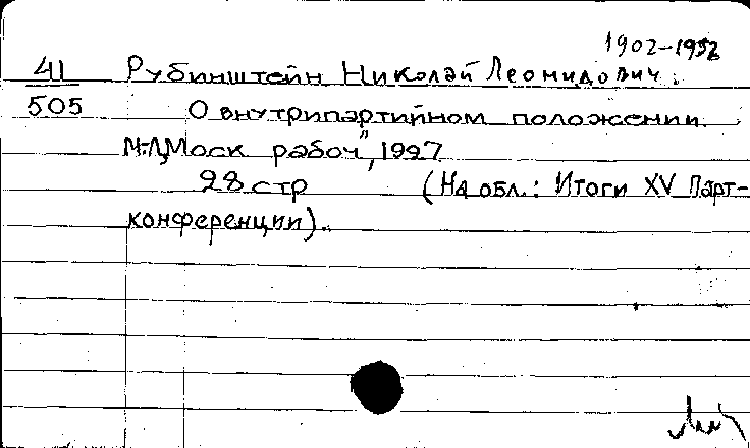 1902-1952
41 Рубинштейн Николай Леонидович.
505 О внутрипартийном положении.
М-Л, Моск рабоч", 1927
28 стр (На обл.: Итоги XV Парт-
конференции).